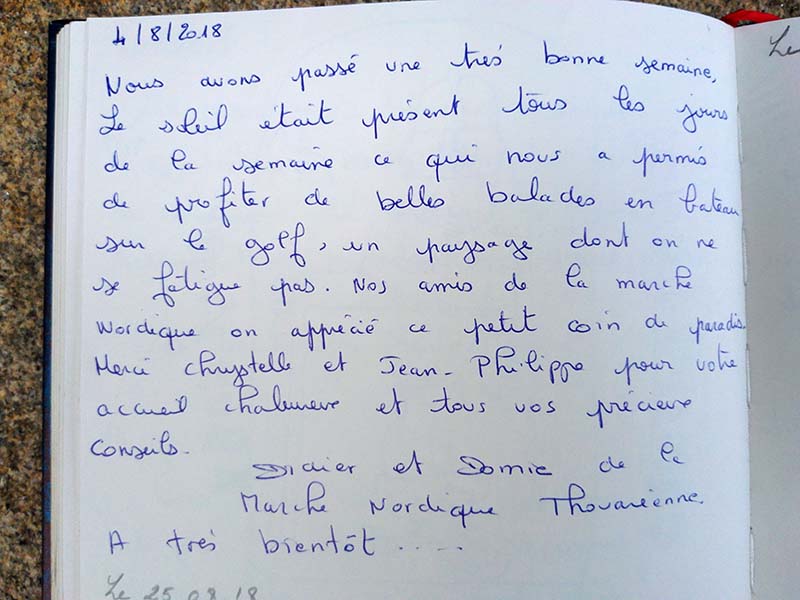 4/8/2018
Nous avons passé une très bonne semaine,
Le soleil était présent tous les jours
de la semaine ce qui nous a permis
de profiter de belles balades en bateau
sur le golf, un paysage dont on ne
se fatigue pas. Nos amis de la marche
Nordique on apprécié ce petit coin de paradis.
Merci Chrystelle et Jean-Philippe pour votre
accueil chaleureux et tous vos précieux
conseils.
Didier et Domie de la
Marche Nordique Thouaréenne.
A très bientôt .....
Le 25.08.18
Le